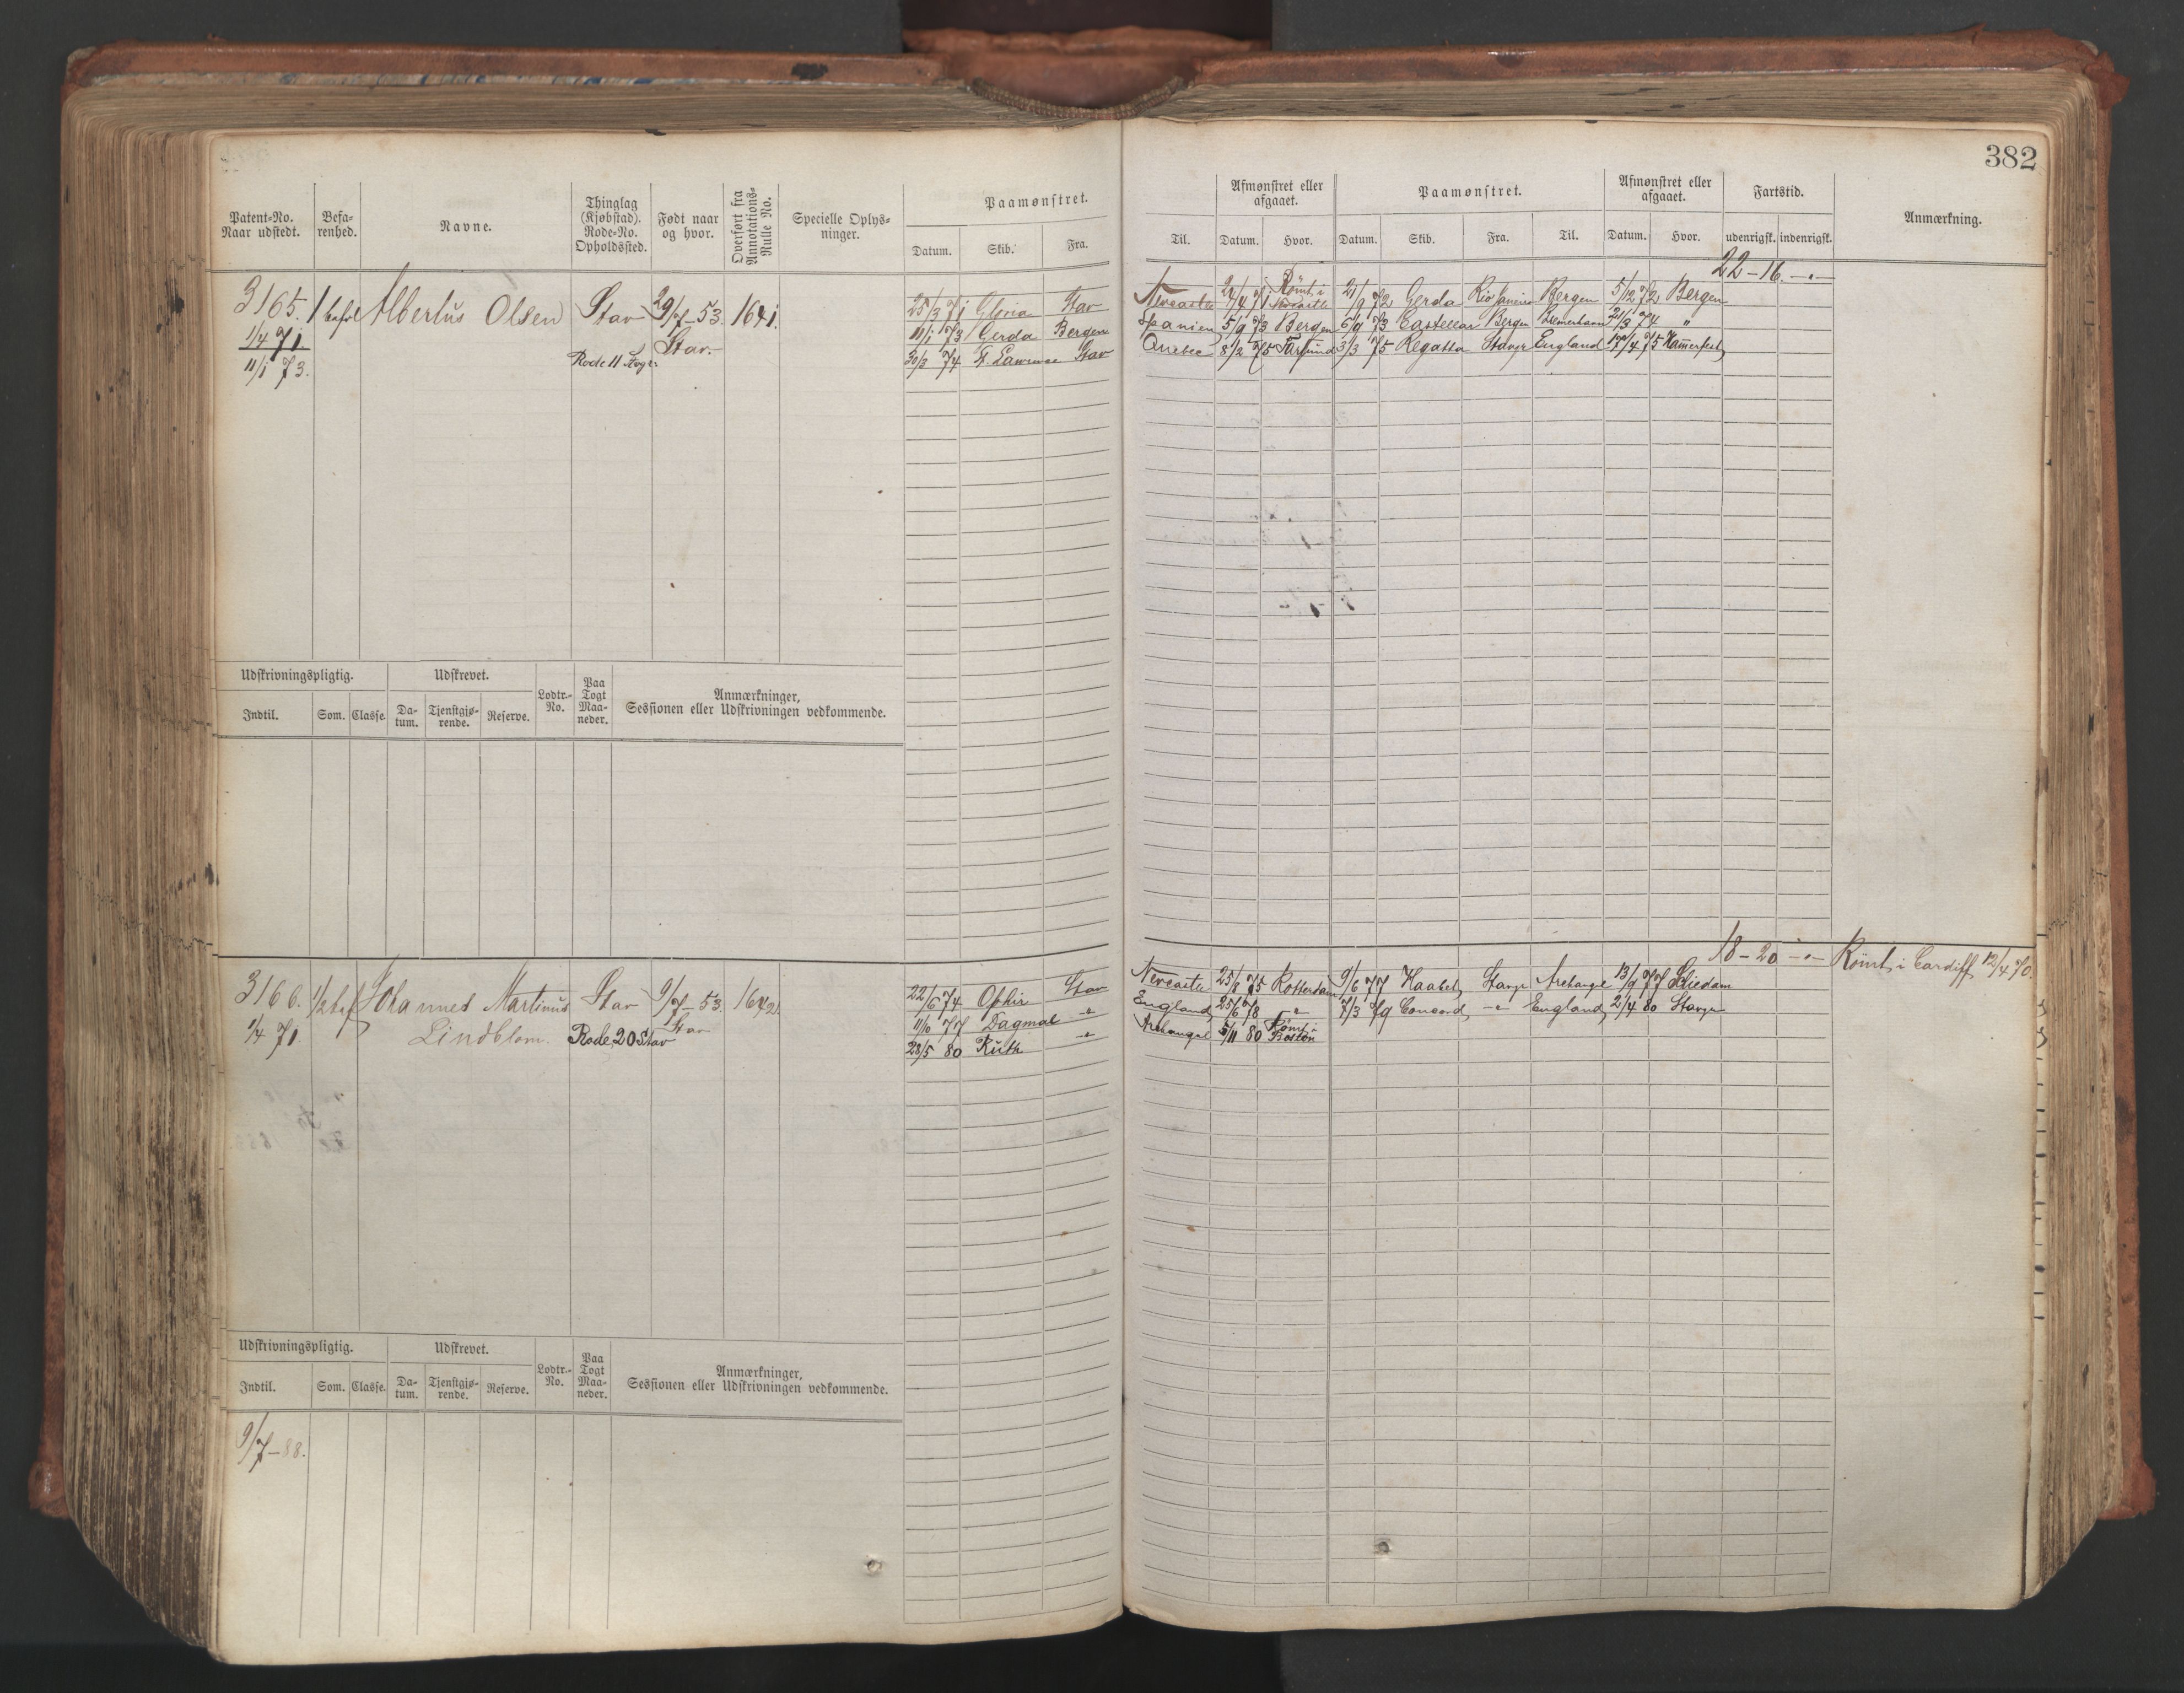 382
Patent-No. Naar udstedt. Befarenhed. Navne. Thinglag (Kjøbstad). Rode-No. Opholdssted. Født naar og hvor. Overført fra Annotations-Rulle No. Specielle Oplysninger. Paamønstret. Datum. Skib. Fra.
Til. Afmønstret eller afgaaet. Datum. Hvor. Paamønstret. Datum. Skib. Fra. Til. Afmønstret eller afgaaet. Datum. Hvor. Fartstid. udenrigsk. indenrigsk. Anmærkning.
22-16-"-
3165. Albertus Olsen Stav 29/7-53. 1641. 25/3 71 Gloria Stav Newcastle 71 Rømt i Newcastle 21/9 72 Gerda Rio Janeiro Bergen 5/12 72 Bergen
1/4 71 Stav. 11/1 73 Gerda Bergen Spanien 5/9 73 Bergen 6/9 73 Castellan Bergen 3 74 "
11/1 73. Rode 11 30/3 74 St. Lawrence Stav Quebec 8/2 75 3/3 75 Regatta Stavgr England 17/4 75 Hamerfest
Udskrivningspligtig. Udskrevet. Lodtr.-No. Paa Togt Maaneder. Anmærkninger, Sessionen eller Udskrivningen vedkommende.
Indtil. Som. Classe. Datum. Tjenstgjørende. Reserve.
18-20-"- Rømt i Cardiff 12/4 70.
3166. 1/2 bef Johannes Martinus Stav 9/7-53. 1642. 22/6 74 Ophir Stav Newcastle 25/8 75 Rotterdam 9/6 77 Haabet Stavgr Archangel 13/9 77 Schiedam
1/4 71. Lindblom. Rode 20 Stav Stav 11/10 77 Dagmar -"- England 25/6 78 -"- 7/3 79 Concord -"- England 2/4 80 Stavgr
28/5 80 Ruth -"- Archangel 5/11 80 Rømt i Boston
Udskrivningspligtig. Udskrevet. Lodtr.-No. Paa Togt Maaneder. Anmærkninger, Sessionen eller Udskrivningen vedkommende.
Indtil. Som. Classe. Datum. Tjenstgjørende. Reserve.
9/7-88.